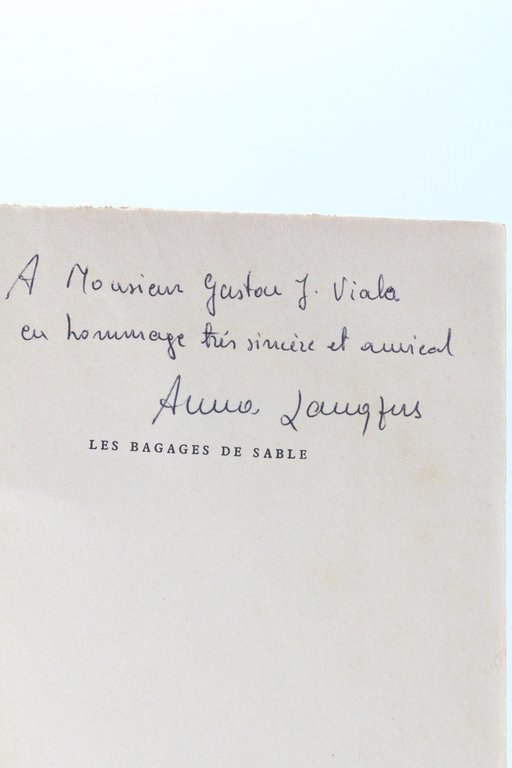 A Monsieur Gaston J. Viala
en hommage très sincère et amical
Anna Langfus
LES BAGAGES DE SABLE